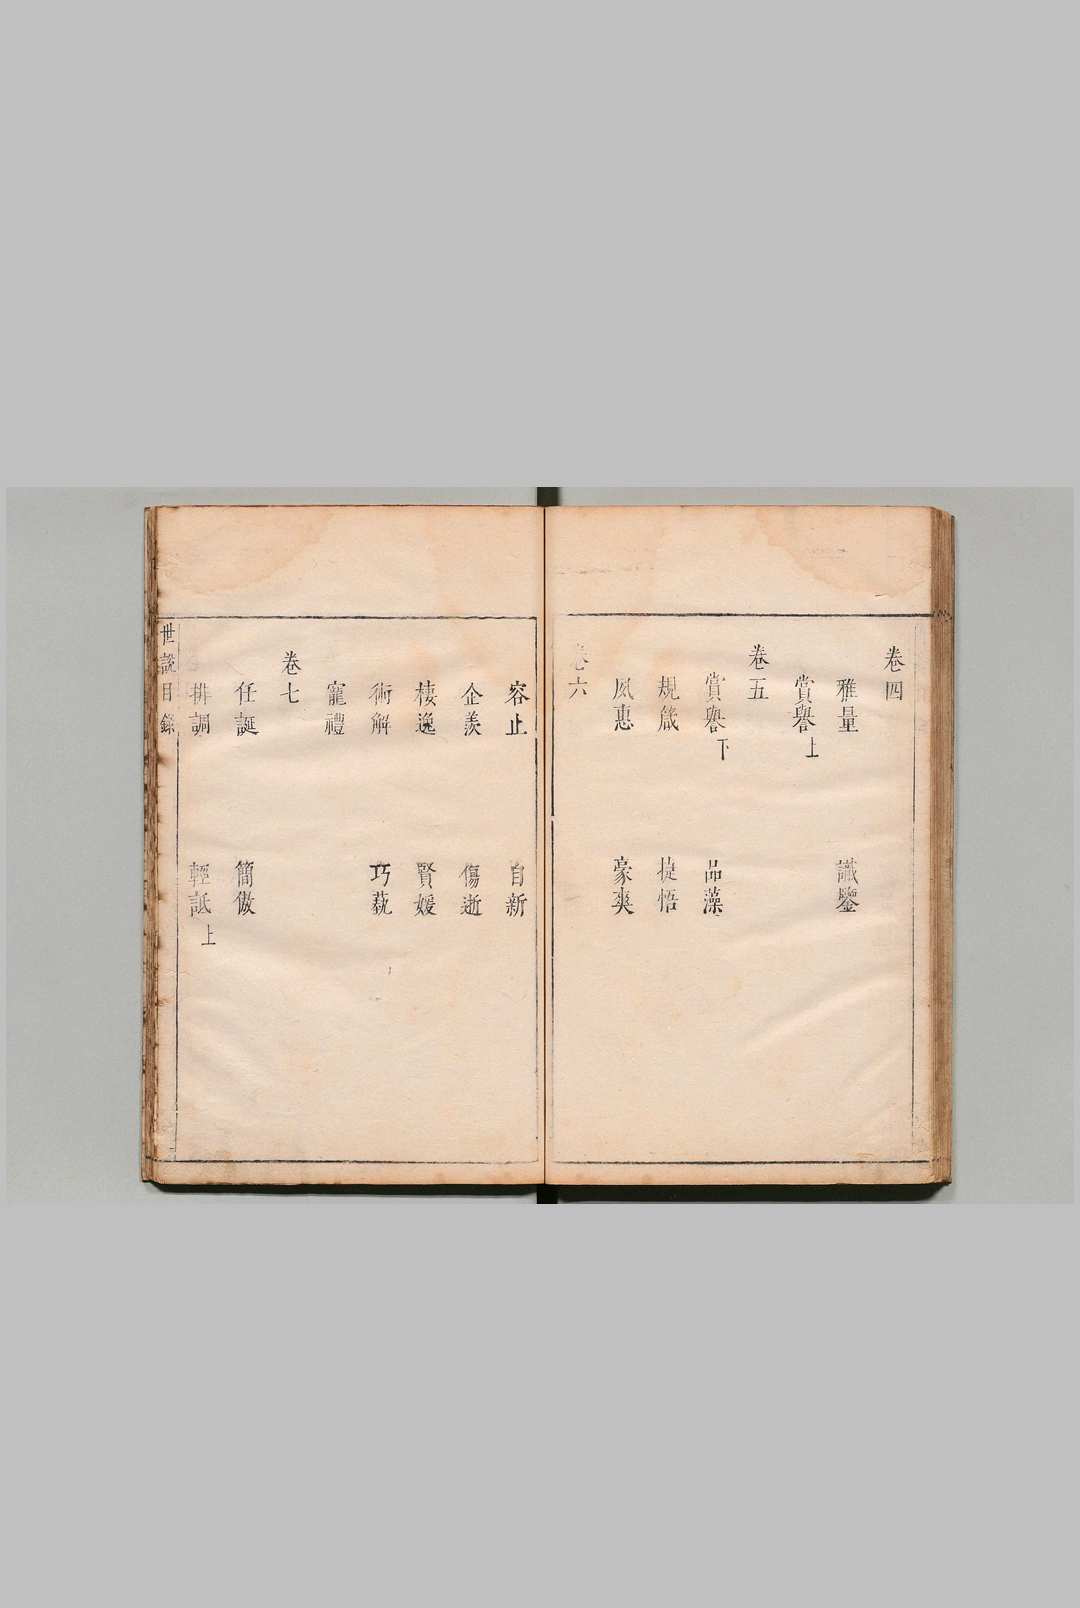 卷四
雅量 識鑒
賞譽上
卷五
賞譽下 品藻
規箴 捷悟
夙惠 豪爽
卷六
容止 自新
企羨 傷逝
棲逸 賢媛
術解 巧藝
寵禮
卷七
任誕 簡傲
排調 輕詆上
世說目錄